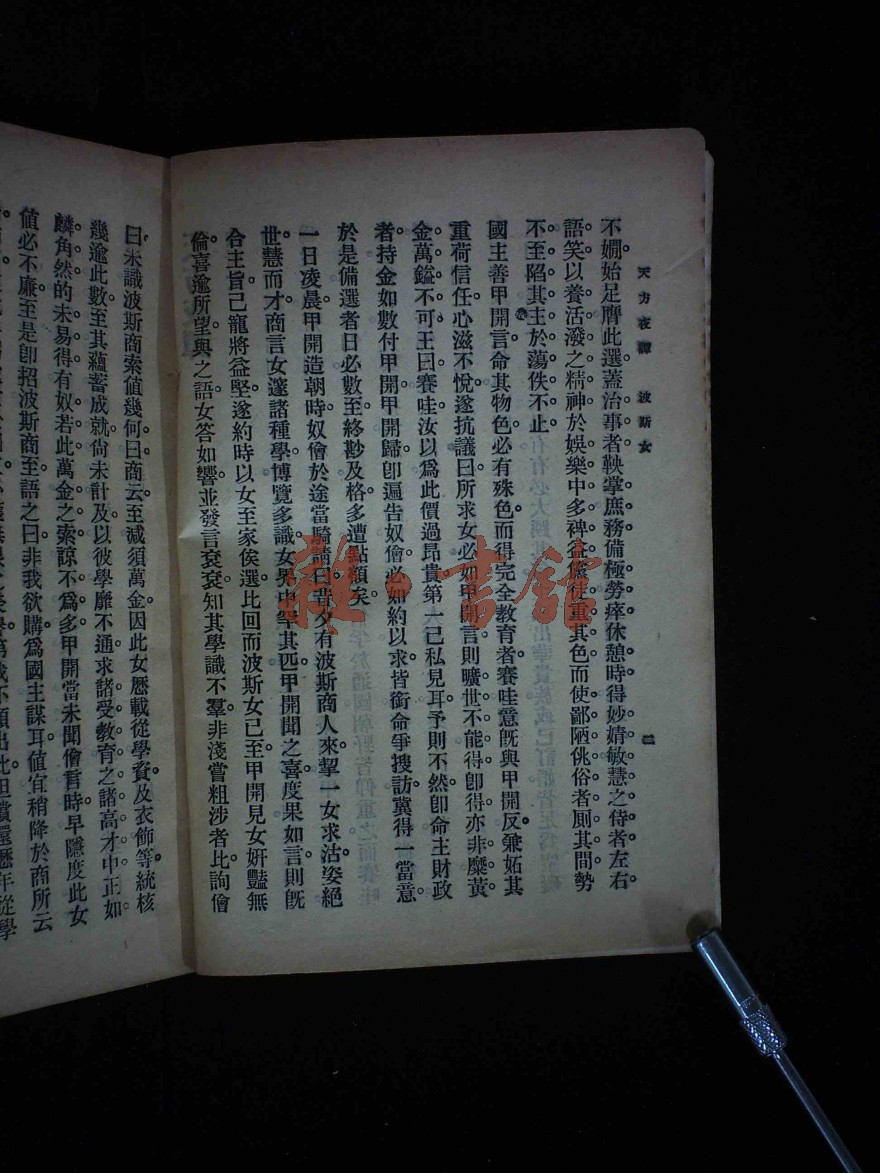 天方夜譚　波斯女　二
不嫺。始足膺此選。蓋治事者鞅掌庶務。備極勞瘁。休憩時得妙婧敏慧之侍者。左右
語笑以養活潑之精神。於娛樂中多裨益。儻徒重其色。而使鄙陋佻俗者厠其間。勢
不至陷其主於蕩佚不止。
國主善甲開言。命其物色。必有殊色。而得完全敎育者。賽哇意旣與甲開反。兼妬其
重荷信任。心滋不悅。遂抗議曰。所求女必如甲開言。則曠世不能得。卽得亦非糜黃
金萬鎰不可。王曰。賽哇汝以爲此價過昂貴。第一己私見耳。予則不然。卽命主財政
者持金如數付甲開。甲開歸。卽遍告奴儈。必如約以求。皆銜命爭搜訪。冀得一當意。
於是備選者日必數至。終尠及格。多遭點額矣。
一日凌晨。甲開造朝時。奴儈於途當騎請曰。昔夕有波斯商人來。挈一女求沽。姿絕
世。慧而才。商言女邃諸種學。博覽多識。女界中罕其匹。甲開聞之喜。度果如言。則旣
合主旨。己寵將益堅。遂約時以女至家俟選。比回而波斯女已至。甲開見女姸豔無
倫。喜逾所望。與之語。女答如響。並發言衮衮。知其學識不羣。非淺嘗粗涉者比。詢儈
曰。未識波斯商索値幾何。曰。商云至減須萬金。因此女歷載從學資及衣飾等。統核
幾逾此數。至其蘊蓄成就。尙未計及。以彼學靡不通。求諸受敎育之諸高才中。正如
麟角然。的未易得。有奴若此。萬金之索。諒不爲多。甲開當未聞儈言時。早隱度此女
値必不廉。至是卽招波斯商至。語之曰。非我欲購。爲國主謀耳。値宜稍降。於商所云